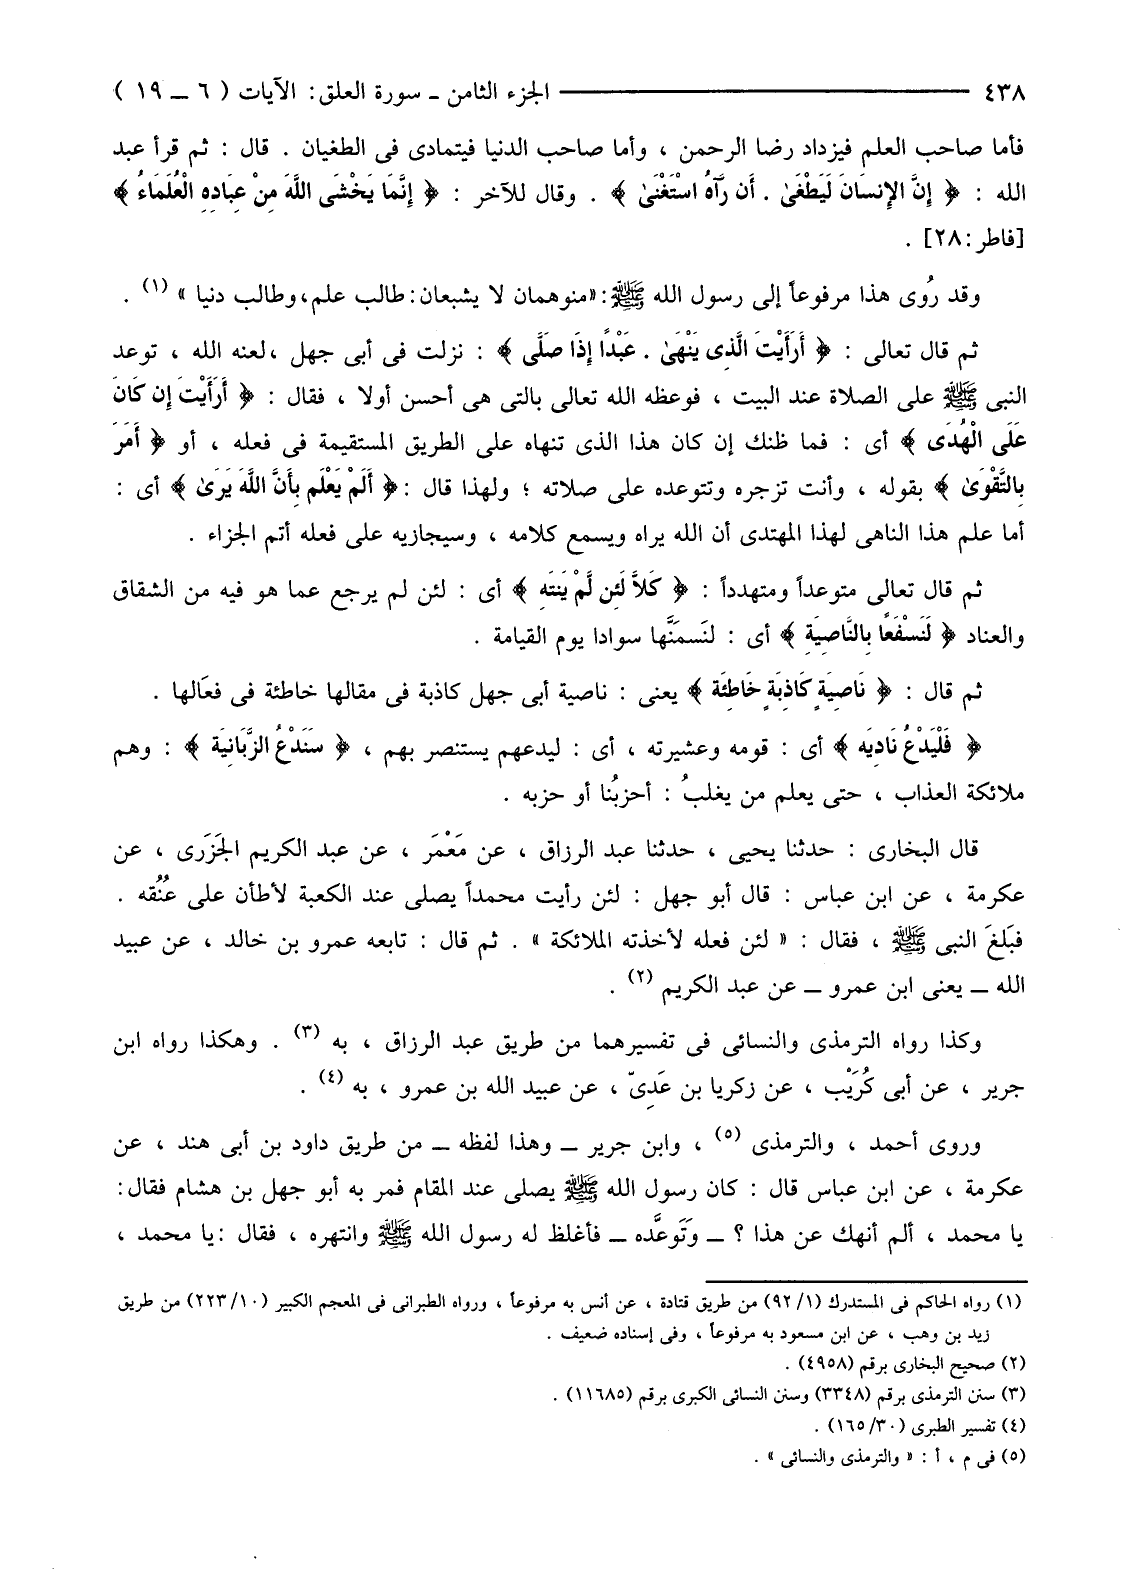 ٤٣٨ ـــــــــــــــــ الجزء الثامن ـ سورة العلق: الآيات ( ٦ ـ ١٩ )
فأما صاحب العلم فيزداد رضا الرحمن ، وأما صاحب الدنيا فيتمادى فى الطغيان . قال : ثم قرأ عبد
الله : ﴿ إِنَّ الإِنسَانَ لَيَطْغَىٰ . أَن رَّآهُ اسْتَغْنَىٰ ﴾ . وقال للآخر : ﴿ إِنَّمَا يَخْشَى اللَّهَ مِنْ عِبَادِهِ الْعُلَمَاءُ ﴾
[فاطر:٢٨] .
وقد رُوى هذا مرفوعاً إلى رسول الله ﷺ:«منوهمان لا يشبعان:طالب علم،وطالب دنيا » (١) .
ثم قال تعالى : ﴿ أَرَأَيْتَ الَّذِى يَنْهَىٰ . عَبْدًا إِذَا صَلَّى ﴾ : نزلت فى أبى جهل ،لعنه الله ، توعد
النبى ﷺ على الصلاة عند البيت ، فوعظه الله تعالى بالتى هى أحسن أولا ، فقال : ﴿ أَرَأَيْتَ إِن كَانَ
عَلَى الْهُدَى ﴾ أى : فما ظنك إن كان هذا الذى تنهاه على الطريق المستقيمة فى فعله ، أو ﴿ أَمَرَ
بِالتَّقْوَىٰ ﴾ بقوله ، وأنت تزجره وتتوعده على صلاته ؛ ولهذا قال :﴿ أَلَمْ يَعْلَم بِأَنَّ اللَّهَ يَرَىٰ ﴾ أى :
أما علم هذا الناهى لهذا المهتدى أن الله يراه ويسمع كلامه ، وسيجازيه على فعله أتم الجزاء .
ثم قال تعالى متوعداً ومتهدداً : ﴿ كَلاَّ لَئِن لَّمْ يَنتَهِ ﴾ أى : لئن لم يرجع عما هو فيه من الشقاق
والعناد ﴿ لَنَسْفَعًا بِالنَّاصِيَةِ ﴾ أى : لنَسمَنَّها سوادا يوم القيامة .
ثم قال : ﴿ نَاصِيَةٍ كَاذِبَةٍ خَاطِئَةٍ ﴾ يعنى : ناصية أبى جهل كاذبة فى مقالها خاطئة فى فعَالها .
﴿ فَلْيَدْعُ نَادِيَه ﴾ أى : قومه وعشيرته ، أى : ليدعهم يستنصر بهم ، ﴿ سَنَدْعُ الزَّبَانِيَة ﴾ : وهم
ملائكة العذاب ، حتى يعلم من يغلبُ : أحزبُنا أو حزبه .
قال البخارى : حدثنا يحيى ، حدثنا عبد الرزاق ، عن مَعْمَر ، عن عبد الكريم الجَزَرى ، عن
عكرمة ، عن ابن عباس : قال أبو جهل : لئن رأيت محمداً يصلى عند الكعبة لأطأن على عُنُقه .
فبَلغَ النبى ﷺ ، فقال : « لئن فعله لأخذته الملائكة » . ثم قال : تابعه عمرو بن خالد ، عن عبيد
الله ـ يعنى ابن عمرو ـ عن عبد الكريم (٢) .
وكذا رواه الترمذى والنسائى فى تفسيرهما من طريق عبد الرزاق ، به (٣) . وهكذا رواه ابن
جرير ، عن أبى كُرَيْب ، عن زكريا بن عَدِىّ ، عن عبيد الله بن عمرو ، به (٤) .
وروى أحمد ، والترمذى (٥) ، وابن جرير ـ وهذا لفظه ـ من طريق داود بن أبى هند ، عن
عكرمة ، عن ابن عباس قال : كان رسول الله ﷺ يصلى عند المقام فمر به أبو جهل بن هشام فقال:
يا محمد ، ألم أنهك عن هذا ؟ ـ وَتَوعَّده ـ فأغلظ له رسول الله ﷺ وانتهره ، فقال :يا محمد ،
(١) رواه الحاكم فى المستدرك (٩٢/١) من طريق قتادة ، عن أنس به مرفوعاً ، ورواه الطبرانى فى المعجم الكبير (٢٢٣/١٠) من طريق
زيد بن وهب ، عن ابن مسعود به مرفوعاً ، وفى إسناده ضعيف .
(٢) صحيح البخارى برقم (٤٩٥٨) .
(٣) سنن الترمذى برقم (٣٣٤٨) وسنن النسائى الكبرى برقم (١١٦٨٥) .
(٤) تفسير الطبرى (١٦٥/٣٠) .
(٥) فى م ، أ : « والترمذى والنسائى » .